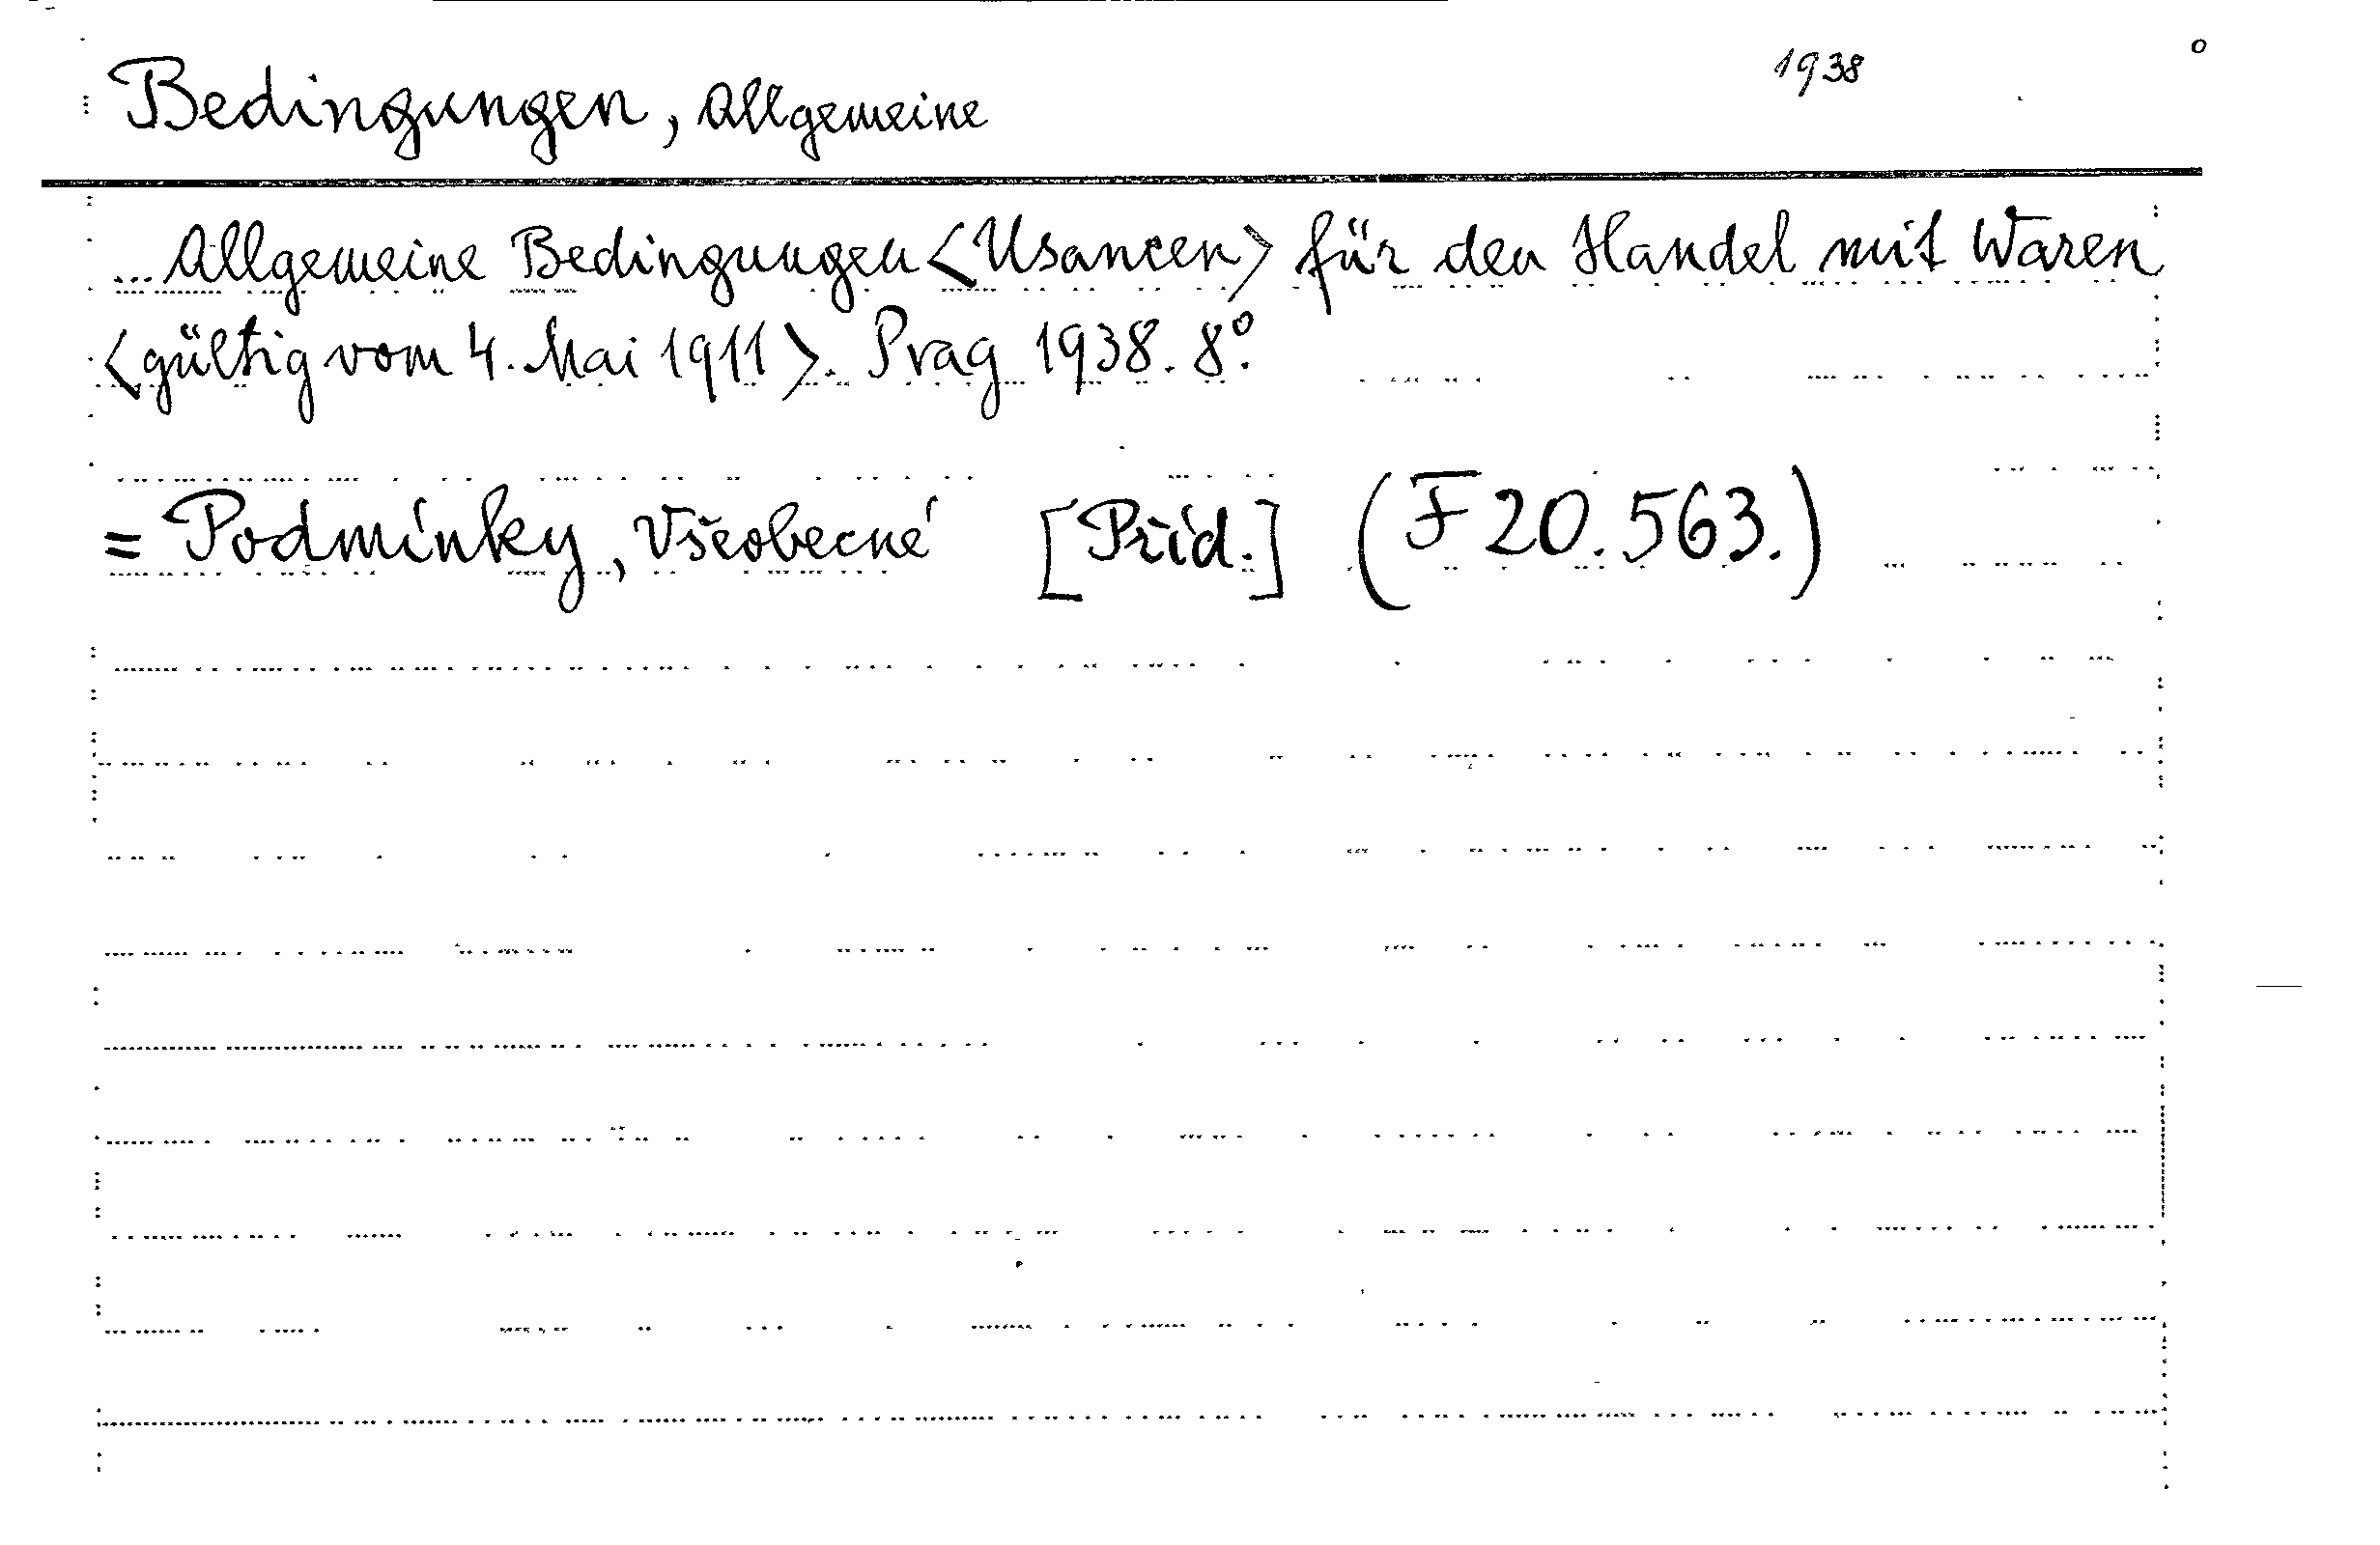 Bedingungen, Allgemeine 1938
... Allgemeine Bedingungen <Usancen> für den Handel mit Waren
<gültig vom 4. Mai 1911>. Prag 1938. 8º.
= Podmínky, Všeobecné [Příd.] (F 20.563.)